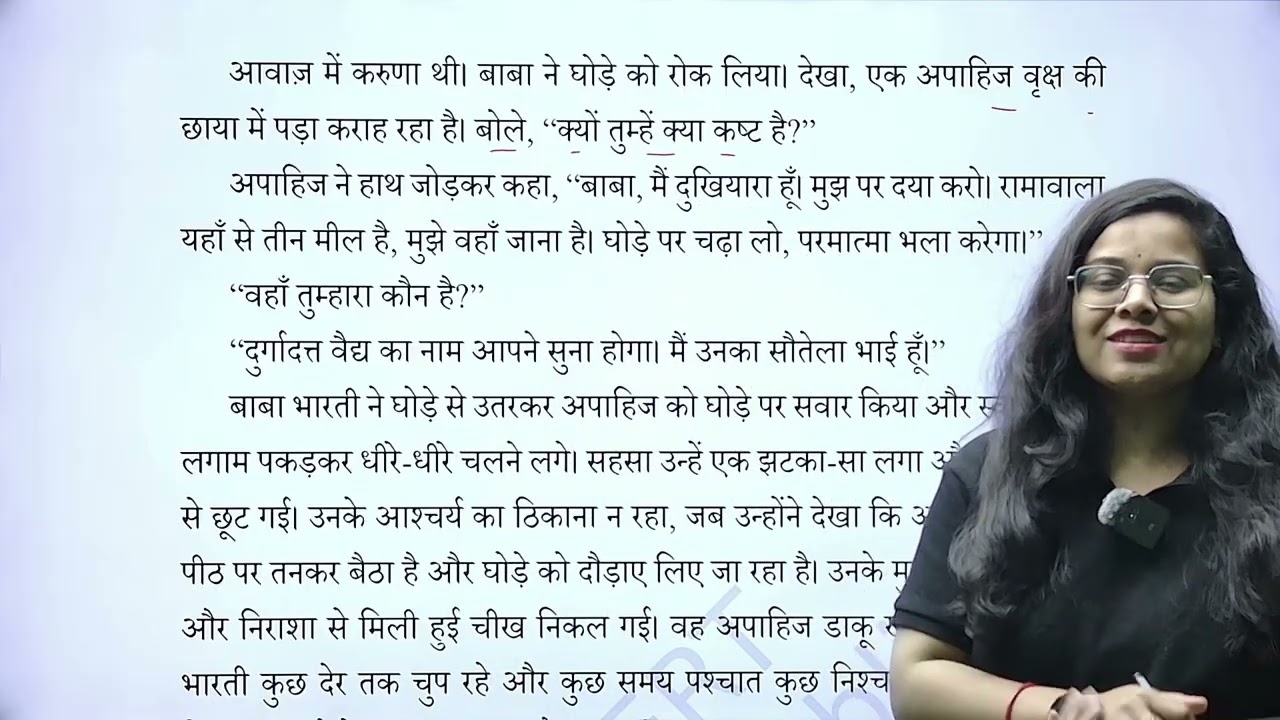 आवाज़ में करुणा थी। बाबा ने घोड़े को रोक लिया। देखा, एक अपाहिज वृक्ष की
छाया में पड़ा कराह रहा है। बोले, “क्यों तुम्हें क्या कष्ट है?”
अपाहिज ने हाथ जोड़कर कहा, “बाबा, मैं दुखियारा हूँ। मुझ पर दया करो। रामावाला
यहाँ से तीन मील है, मुझे वहाँ जाना है। घोड़े पर चढ़ा लो, परमात्मा भला करेगा।”
“वहाँ तुम्हारा कौन है?”
“दुर्गादत्त वैद्य का नाम आपने सुना होगा। मैं उनका सौतेला भाई हूँ।”
बाबा भारती ने घोड़े से उतरकर अपाहिज को घोड़े पर सवार किया और
लगाम पकड़कर धीरे-धीरे चलने लगे। सहसा उन्हें एक झटका-सा लगा
से छूट गई। उनके आश्चर्य का ठिकाना न रहा, जब उन्होंने देखा कि
पीठ पर तनकर बैठा है और घोड़े को दौड़ाए लिए जा रहा है। उनके
और निराशा से मिली हुई चीख निकल गई। वह अपाहिज डाकू
भारती कुछ देर तक चुप रहे और कुछ समय पश्चात कुछ